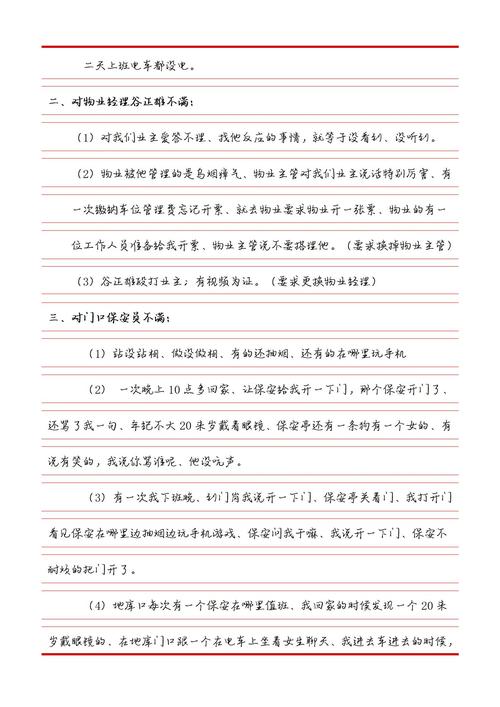 二天上班电车都没电。
二、对物业经理谷正雄不满;
(1)对我们业主爱答不理、找他反应的事情,就等于没看到、没听到。
(2)物业被他管理的是乌烟瘴气、物业主管对我们业主说话特别厉害、有
一次缴纳车位管理费忘记开票、就去物业要求物业开一张票、物业的有一
位工作人员准备给我开票、物业主管说不要搭理他。(要求换掉物业主管)
(3)谷正雄殴打业主;有视频为证。(要求更换物业经理)
三、对门口保安员不满;
(1)站没站相、做没做相、有的还抽烟、还有的在哪里玩手机
(2) 一次晚上10点多回家、让保安给我开一下门,那个保安开门了、
还骂了我一句、年纪不大20来岁戴着眼镜、保安亭还有一条狗有一个女的、有
说有笑的,我说你骂谁呢、他没吭声。
(3)有一次我下班晚、到门岗我说开一下门、保安亭关着门、我打开门
看见保安在哪里边抽烟边玩手机游戏、保安问我干嘛、我说开一下门、保安不
耐烦的把门开了。
(4)地库口每次有一个保安在哪里值班、我回家的时候发现一个20来
岁戴眼镜的、在地库门口跟一个在电车上坐着女生聊天、我进去车进去的时候,